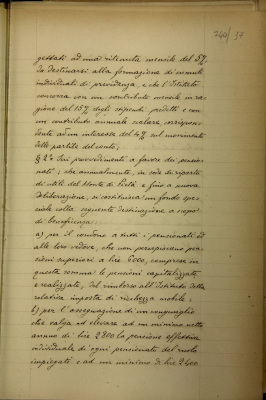 240/37
gettati ad una ritenuta mensile del 5%
da destinarsi alla formazione di conti
individuali di previdenza, e che l'Istituto
concorra con un contributo mensile in ra-
gione del 15% degli stipendi predetti e con
un contributo annuale scalare, corrispon-
dente ad un interesse del 4% sul movimento
delle partite del conto;
§ 2° Sui provvedimenti a favore dei pensio-
nati; che annualmente, in sede di riparto
di utili del Monte di Pietà e fino a nuova
deliberazione, si costituisca un fondo spe-
ciale colla seguente destinazione a scopo
di beneficenza:
a) per il condono a tutti i pensionati ed
alle loro vedove, che non percepiscano pen-
sioni superiori a lire 6000, comprese in
questa somma le pensioni capitalizzate
e realizzate, del rimborso all'Istituto della
relativa imposta di ricchezza mobile;
b) per l'assegnazione di un conguaglio
che valga ad elevare ad un minimo netto
annuo di lire 2800 la pensione effettiva
individuale di ogni pensionato del ruolo
impiegati e ad un minimo di lire 2400